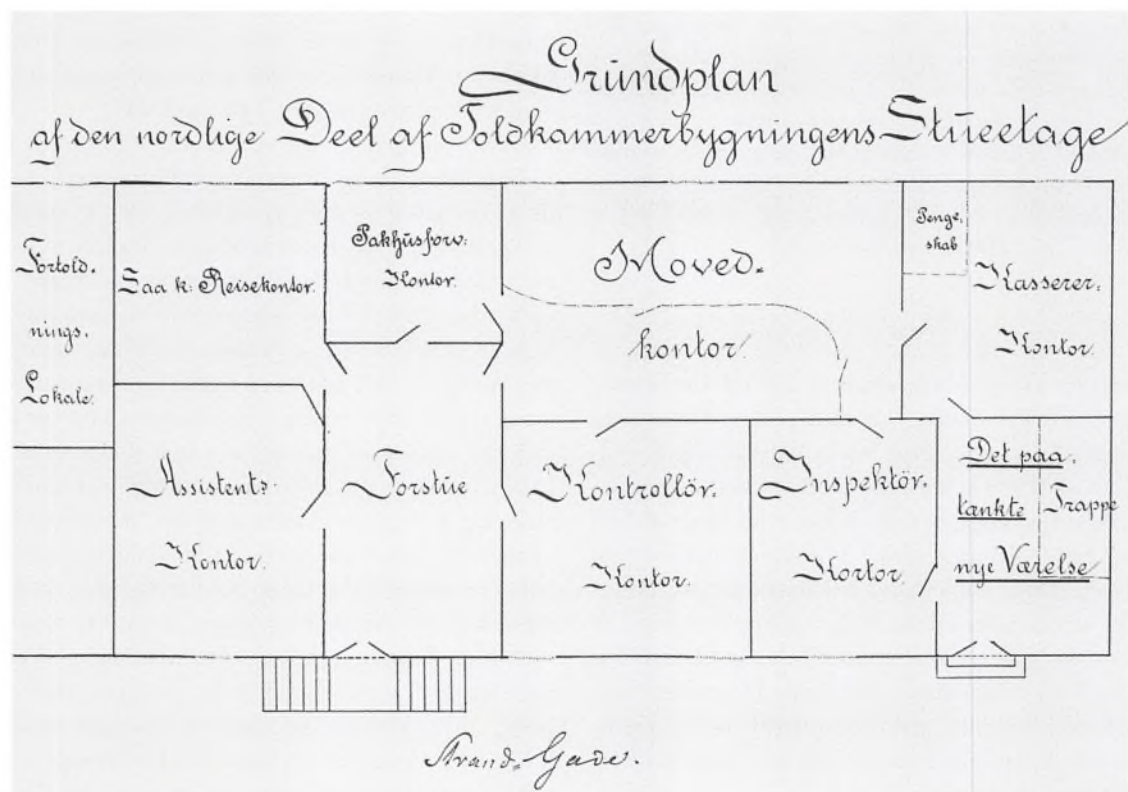 Grundplan
af den nordlige Deel af Toldkammerbygningens Stueetage
Fortold.
nings.
Lokale.
Saak: Reisekontor.
Pakhusforv:
Kontor.
Hoved.
kontor.
Penge.
skab
Kasserer.
Kontor.
Assistent.
Kontor.
Forstue
Kontrollör.
Kontor.
Inspektör.
Kortor.
Det paa.
tænkte
nye Værelse
Trappe
Strand-Gade.